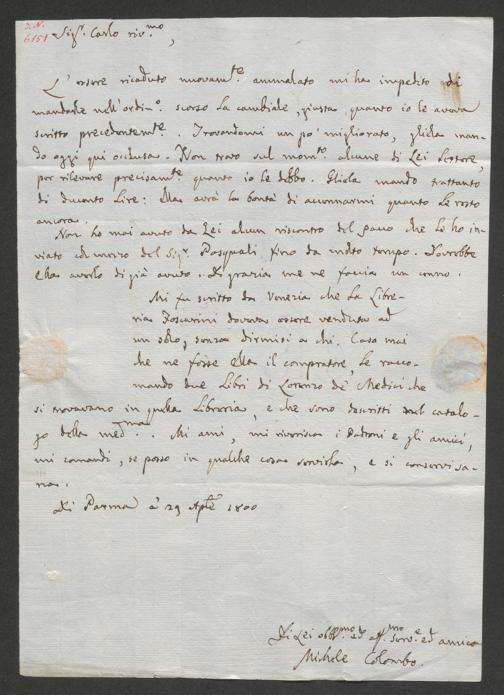 I. N.
6151
Sigr. Carlo riv.mo,
L'essere ricaduto nuovamte ammalato mi ha impedito di
mandarle nell'ordino. scorso la cambiale, giusta quanto io le aveva
scritto precedentemte. Trovandomi un po' migliorato, gliela man-
do oggi qui occlusa. Non trovo sul momto. alcune di Lei Lettere,
per rilevare precisamte quanto io le debbo. Gliela mando trattanto
di ducento Lire: Ella avrà la bontà di accennarmi quanto Le resto
ancora.
Non ho mai avuto da Lei alcun riscontro del pacco che Le ho in-
viato col mezzo del Sigr. Pasquali fino da molto tempo. Dovrebbe
ella averlo di già avuto. Di grazia me ne faccia un cenno.
Mi fu scritto da Venezia che la Libre-
ria Foscarini doveva essere venduta ad
un solo, senza dirmisi a chi. Caso mai
che ne fosse Ella il compratore, Le racco-
mando due Libri di Lorenzo de' Medici che
si trovavano in quella Libreria, e che sono descritti nel catalo-
go della medma. Mi ami, mi riverisca i Padroni e gli amici,
mi comandi, se posso in qualche cosa servirla, e si conservi sa-
na.
Di Parma a' 29 Aple 1800
Di Lei obblmo ed affmo serve ed amico
Michele Colombo.